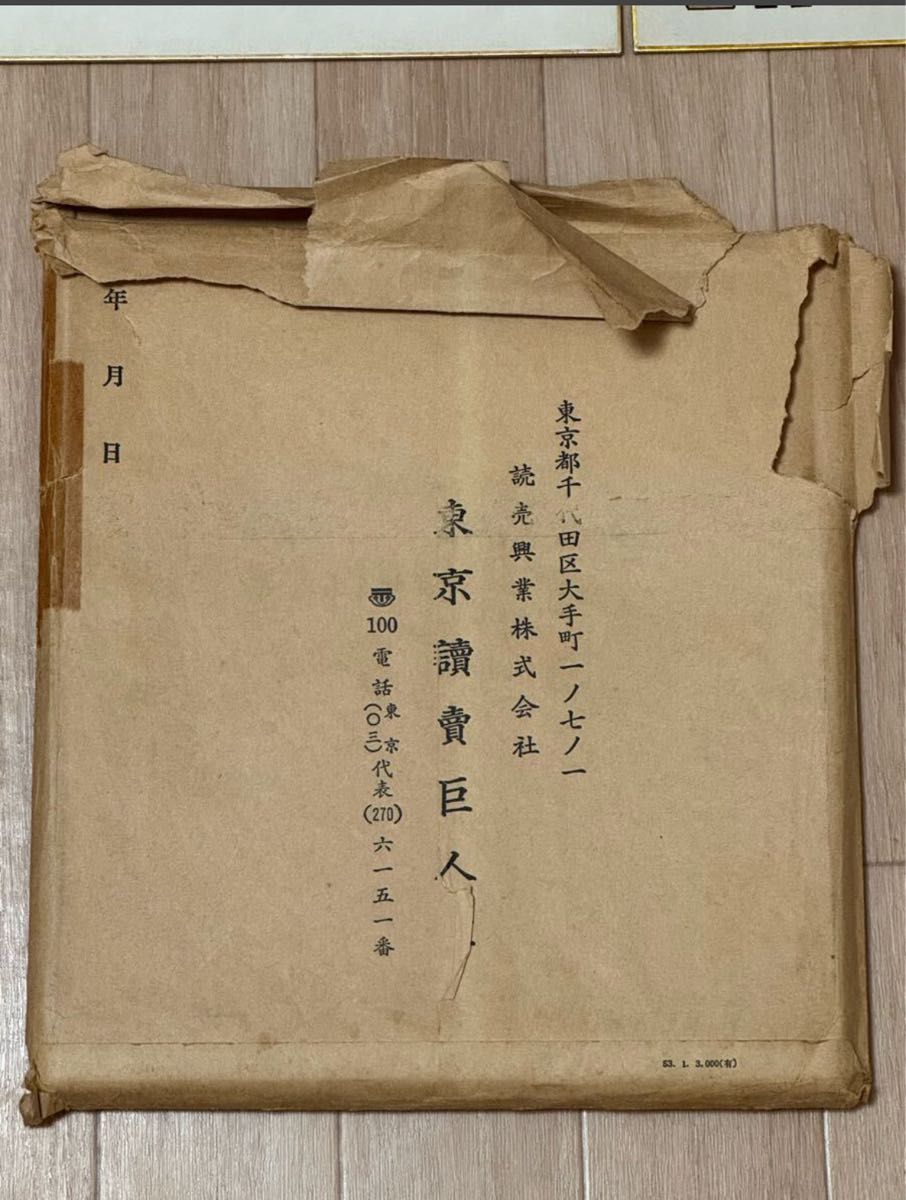 東京都千代田区大手町一ノ七ノ一
読売興業株式会社
東京讀賣巨人
100 電話東京(〇三)代表(270)六一五一番
年 月 日
53. 1. 3.000(有)